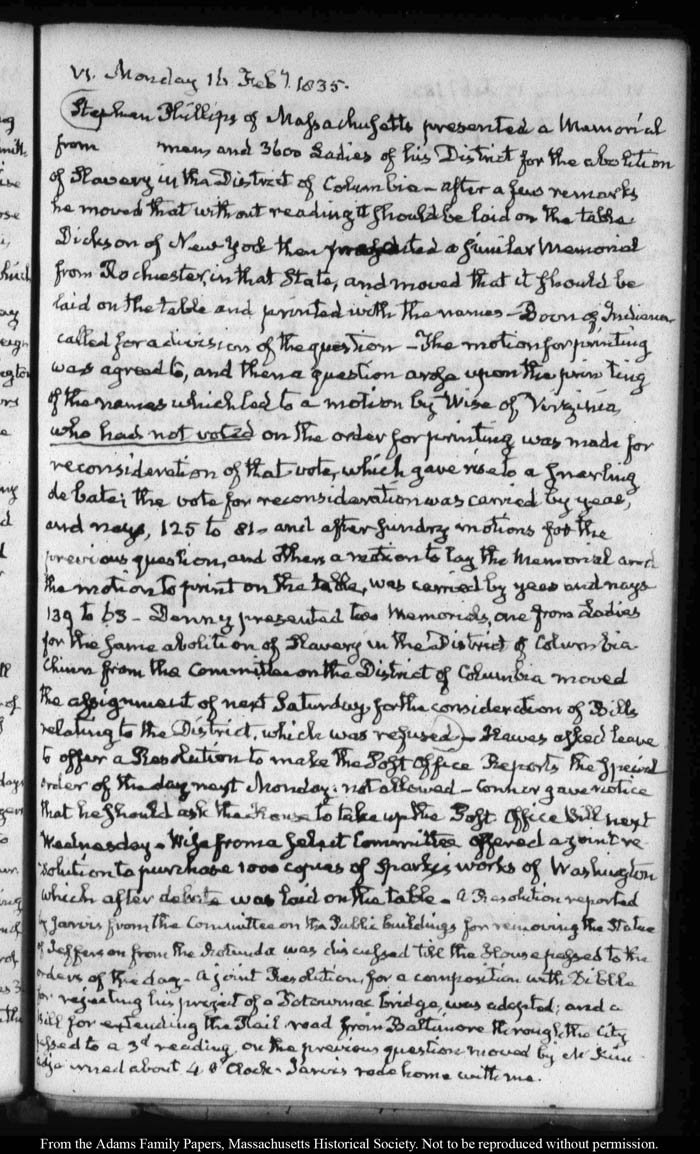 VI. Monday 16 Feby. 1835.
Stephen Phillips of Massachusetts presented a Memorial
from mens and 3600 Ladies of his District for the abolition
of Slavery in the District of Columbia – after a few remarks
he moved that without reading it should be laid on the table.
Dickson of New York then presented a similar Memorial
from Rochester, in that State, and moved that it should be
laid on the table and printed with the names – Boon of Indiana
called for a division of the question – The motion for printing
was agreed to, and then a question arose upon the printing
of the names which led to a motion by Wise of Virginia,
who had not voted on the order for printing was made for
reconsideration of that vote, which gave rise to a snarling
debate; the vote for reconsideration was carried by yeas,
and nays, 125 to 81 – and after sundry motions for the
previous question, and others a motion to lay the Memorial and
the motion to print on the table, was carried by yeas and nays
139 to 63 – Denny presented two Memorials, one from Ladies
for the same abolition of Slavery in the District of Columbia
Chinn from the Committee on the District of Columbia moved
the assignment of next Saturday for the consideration of Bills
relating to the District, which was refused – Hawes asked leave
to offer a Resolution to make the Post Office Reports the special
order of the day next Monday. not allowed – Connor gave notice
that he should ask the House to take up the Post Office Bill next
Wednesday – Wise from a Select Committee offered a joint re-
solution to purchase 1000 copies of Sparks's works of Washington
which after debate was laid on the table – A Resolution reported
by Jarvis from the Committee on the Public buildings for removing the Statue
of Jefferson from the Rotunda was discussed till the House passed to the
orders of the day – A joint Resolution, for a composition with Dibble
for rejecting his project of a Potowmac bridge, was adopted; and a
Bill for extending the Rail road from Baltimore through the City
passed to a 3d reading on the previous question moved by McKim
Adjourned about 4 O'Clock – Jarvis rode home with me.
From the Adams Family Papers, Massachusetts Historical Society. Not to be reproduced without permission.